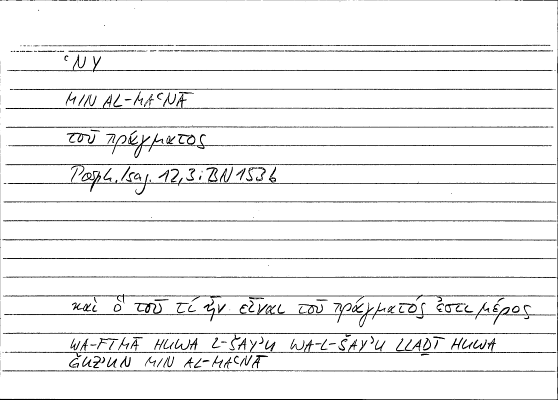 ʿNY
MIN AL-MAʿNĀ
τοῦ πράγματος
Porph. Isag. 12,3: BN 153b
καὶ ὃ τοῦ τί ἦν εἶναι τοῦ πράγματός ἐστι μέρος
WA-FĪMĀ HUWA L-ŠAYʾU WA-L-ŠAYʾU LLAḎĪ HUWA
ǦUZʾUN MIN AL-MAʿNĀ